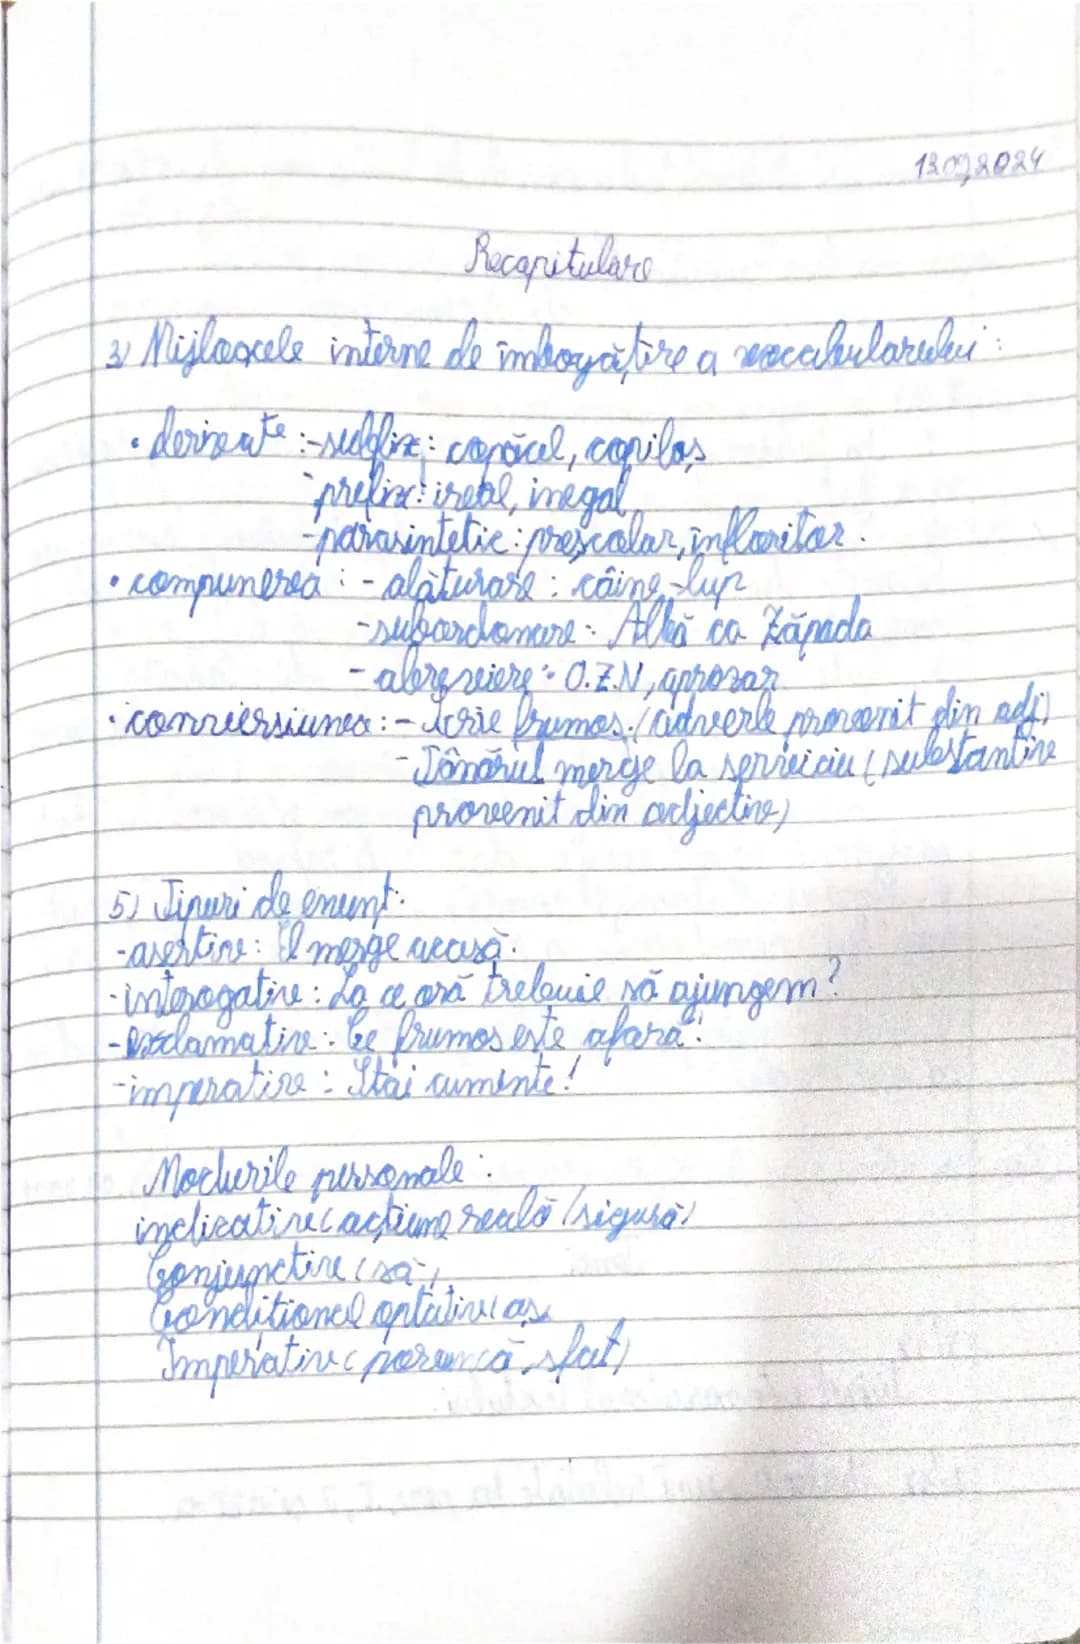 13.09.2024
Recapitulare
3) Mijloacele interne de îmbogățire a vocabularului:
• derivate: - sufix: copăcel, copilaș
- prefix: ireal, inegal
- parasintetic: preșcolar, înfloritor.
• compunerea: - alăturare: câine-lup
- subordonare: Albă ca Zăpada
- abreviere: O.Z.N, aprozar
• conversiunea: - Scrie frumos. (adverb provenit din adj)
- Tânărul merge la serviciu (substantive
provenit din adjective)
5) Tipuri de enunț:
- asertive: El merge acasă.
- interogative: La ce oră trebuie să ajungem?
- exclamative: Ce frumos este afară!
- imperative: Stai cuminte!
Modurile personale:
indicativ (acțiune reală (sigură)
Conjunctive (să)
Condiționel optative (aș
Imperative (poruncă, sfat)